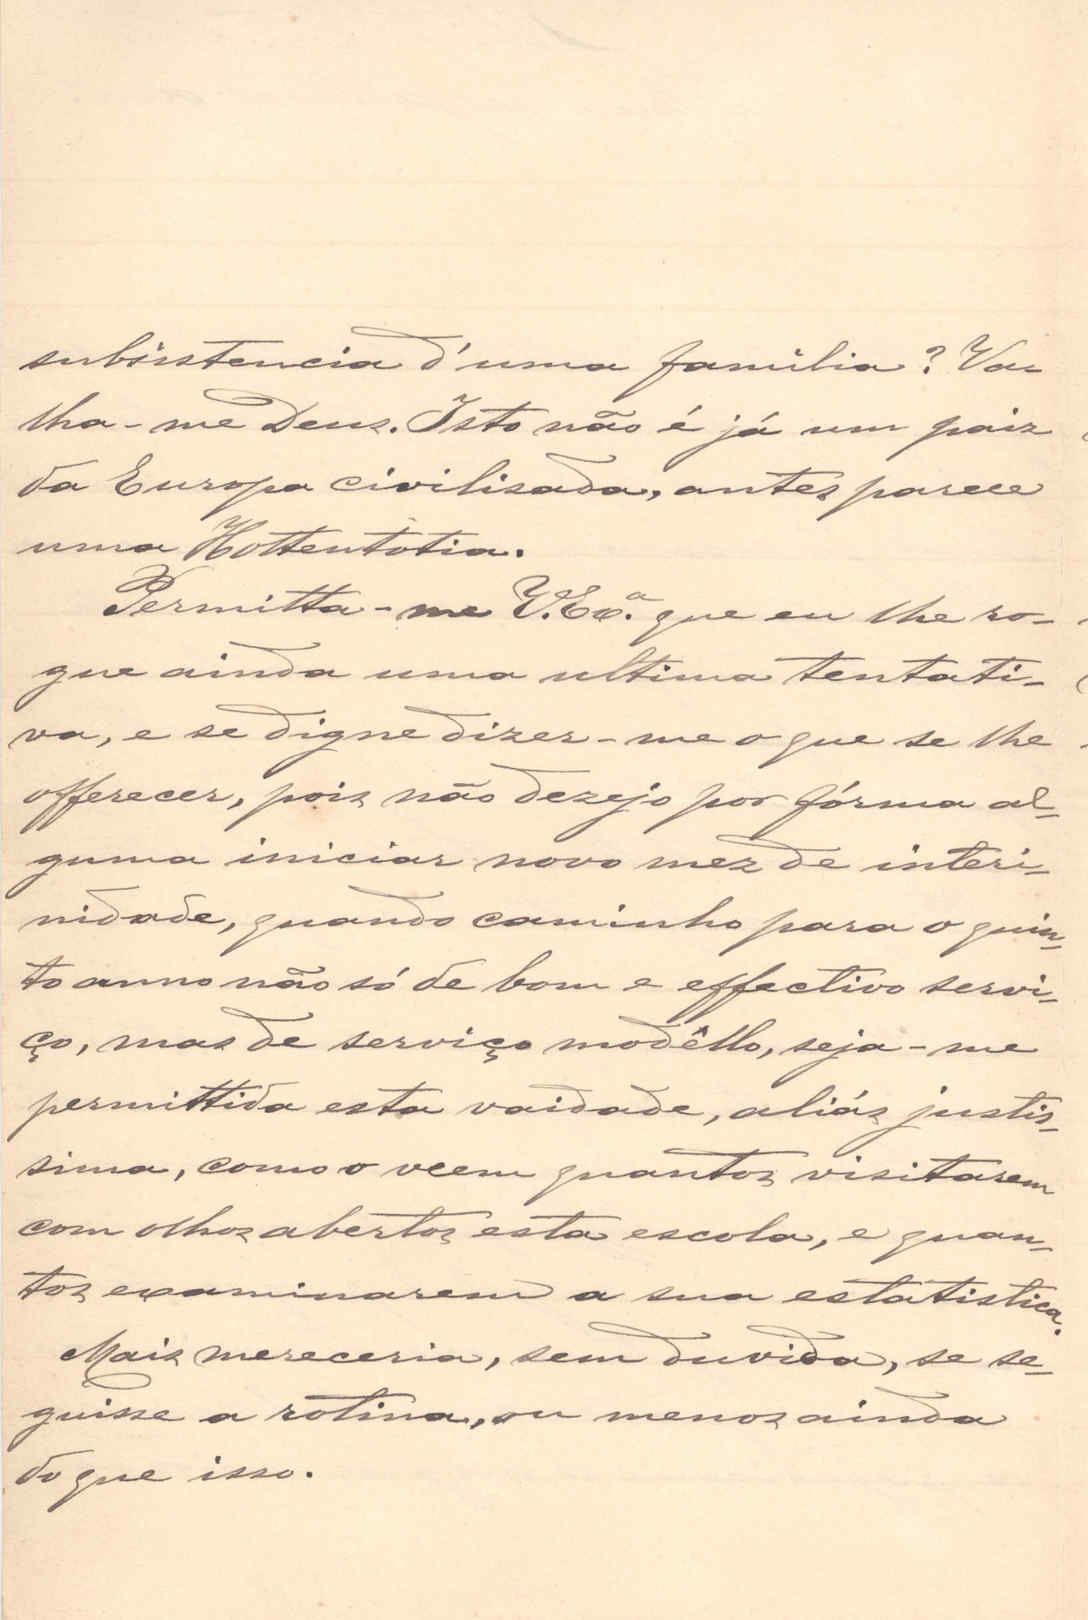 subsistencia d'uma familia? Va-
lha-me Deus. Isto não é já um paiz
da Europa civilisada, antes parece
uma Hottentotia.
Permitta-me V. Ex.ª que eu lhe ro-
gue ainda uma ultima tentati-
va, e se digne dizer-me o que se lhe
offerecer, pois não dezejo por fórma al-
guma iniciar novo mez de interi-
nidade, quando caminho para o quin-
to anno não só de bom e effectivo servi-
ço, mas de serviço modêllo, seja-me
permittida esta vaidade, aliás justis-
sima, como o veem quantos visitarem
com olhos abertos esta escola, e quan-
tos examinarem a sua estatistica.
Mais mereceria, sem duvida, se se-
guisse a rotina, ou menos ainda
do que isso.